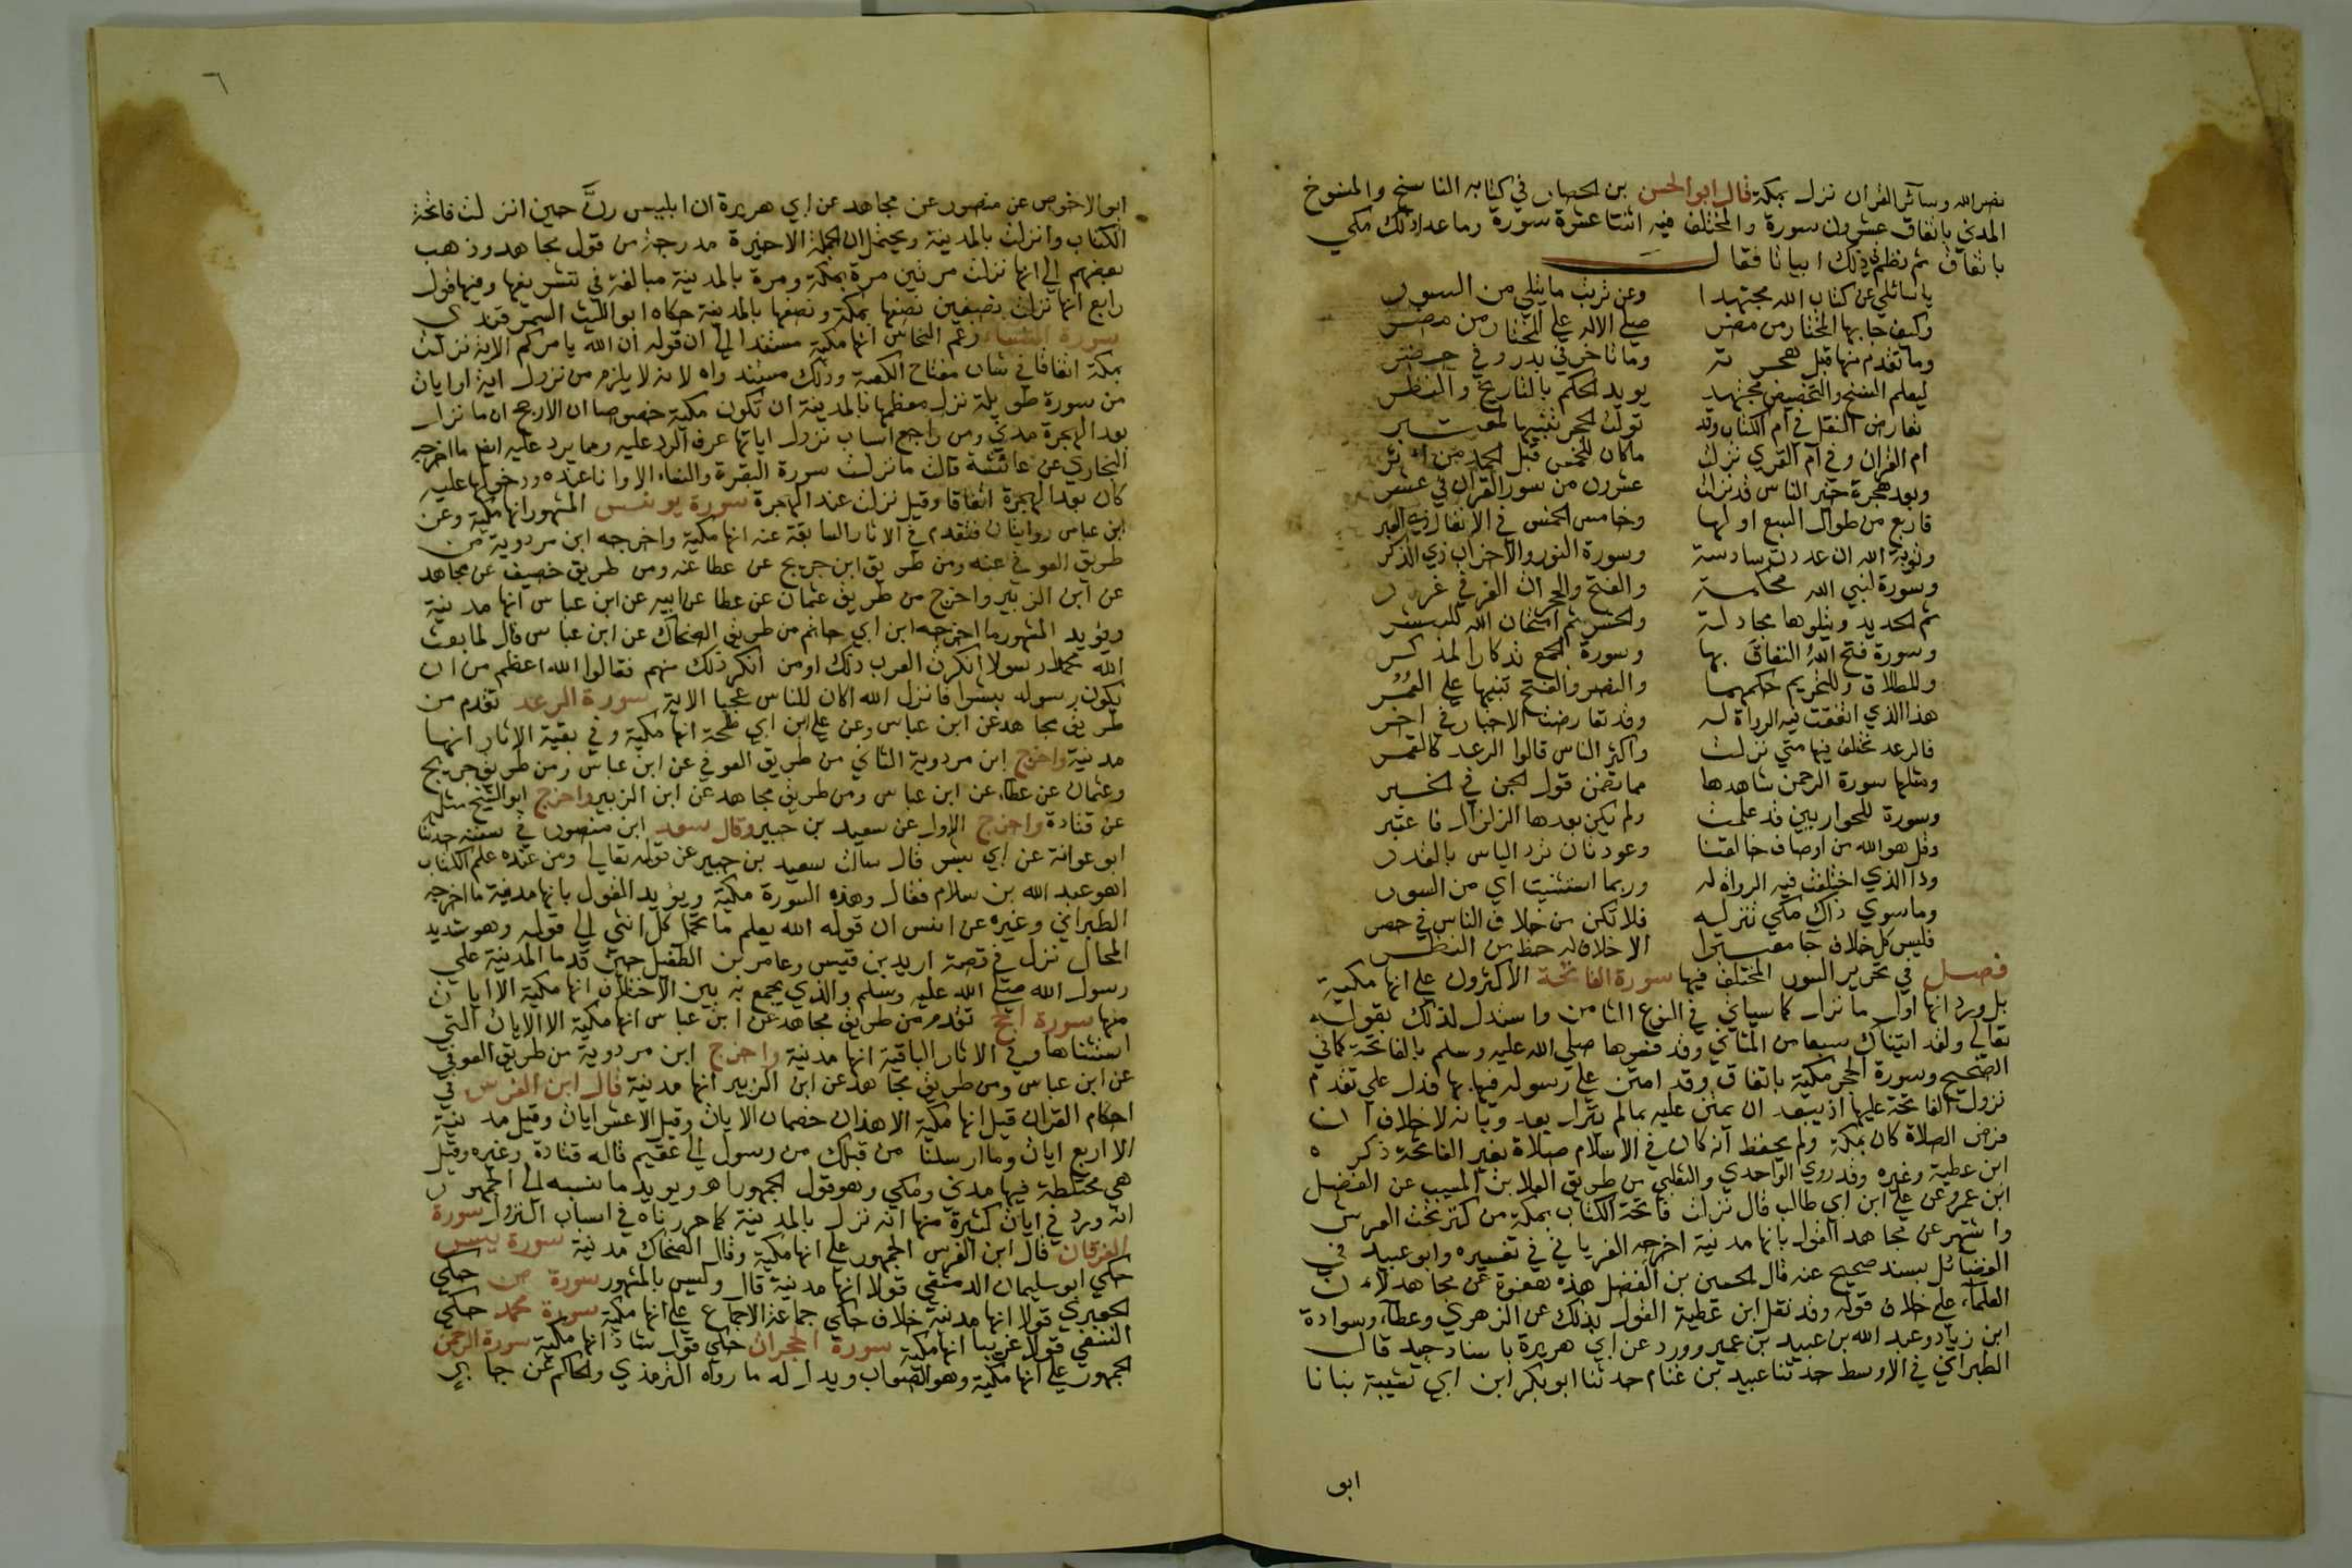 نصر الله وسائر القران نزل بمكة قال ابو الحسن بن الحصار في كتابه الناسخ والمنسوخ
المدني باتفاق عشرون سورة والمختلف فيه اثنتا عشرة سورة وما عدا ذلك مكي
باتفاق ثم نظم في ذلك ابياتا فقال
يا سائلي عن كتاب الله مجتهدا وعن ترتيب ما يتلى من السور
وكيف جا بها المختار من مضر صلى الاله على المختار من مضر
وما تقدم منها قبل هجرته وما تاخر في بدر وفي حضر
ليعلم النسخ والتخصيص مجتهد يويد الحكم بالتاريخ والنظر
تعارض النقل في ام الكتاب وقد تولت الحجر تنبيها لمعتبر
ام القران وفي ام القرى نزلت ماكان للخمس قبل الحمد من اثر
وبعد هجرة خير الناس قد نزلت عشرون من سور القران في عشر
فاربع من طوال السبع اولها وخامس الخمس في الانفال ذي العبر
وتوبة الله ان عددت سادسة وسورة النور والاحزاب ذي الذكر
وسورة لنبي الله محكمة والفتح والحجرات الغر في غرر
ثم الحديد ويتلوها مجادلة والحشر ثم امتحان الله للبشر
وسورة فضح الله النفاق بها وسورة الجمع تذكار المذكر
وللطلاق وللتحريم حكمهما والنصر والفتح تنبيها على العمر
هذا الذي اتفقت فيه الرواة له وقد تعارضت الاخبار في اخر
فالرعد مختلف فيها متى نزلت واكثر الناس قالوا الرعد كالقمر
ومثلها سورة الرحمن شاهدها مما تضمن قول الجن في الخبر
وسورة للحواريين قد علمت ولم يكن بعدها الزلزال فاعتبر
وقل هو الله من اوصاف خالقنا وعوذتان ترد الباس بالقدر
وذا الذي اختلفت فيه الرواة له وربما استثنيت اي من السور
وما سوى ذاك مكي تنزله فلا تكن من خلاف الناس في حصر
فليس كل خلاف جا معتبرا الا خلاف له حظ من النظر
فصل في تحرير السور المختلف فيها سورة الفاتحة الاكثرون على انها مكية
بل ورد انها اول ما نزل كما سياتي في النوع الثامن واستدل لذلك بقوله
تعالى ولقد اتيناك سبعا من المثاني وقد فسرها صلى الله عليه وسلم بالفاتحة كما في
الصحيح وسورة الحجر مكية باتفاق وقد امتن على رسوله فيها بها فدل على تقدم
نزول الفاتحة عليها اذ يبعد ان يمتن عليه بما لم ينزل بعد وبانه لا خلاف ان
فرض الصلاة كان بمكة ولم يحفظ انه كان في الاسلام صلاة بغير الفاتحة ذكره
ابن عطية وغيره وقد روى الواحدي والثعلبي من طريق العلا بن المسيب عن الفضيل
ابن عمرو عن علي ابن ابي طالب قال نزلت فاتحة الكتاب بمكة من كنز تحت العرش
واشتهر عن مجاهد القول بانها مدنية اخرجه الفريابي في تفسيره وابو عبيد في
الفضائل بسند صحيح عنه قال الحسين بن الفضل هذه هفوة عن مجاهد لان
العلماء على خلاف قوله وقد نقل ابن عطية القول بذلك عن الزهري وعطاء وسوادة
ابن زياد وعبد الله بن عبيد بن عمير وورد عن ابي هريرة باسناد جيد قال
الطبراني في الاوسط حدثنا عبيد بن غنام حدثنا ابو بكر ابن ابي شيبة نبانا
ابو
٦
ابو الاحوص عن منصور عن مجاهد عن ابي هريرة ان ابليس رن حين انزلت فاتحة
الكتاب وانزلت بالمدينة ويحتمل ان الجملة الاخيرة مدرجة من قول مجاهد وذهب
بعضهم الى انها نزلت مرتين مرة بمكة ومرة بالمدينة مبالغة في تشريفها وفيها قول
رابع انها نزلت نصفين نصفها بمكة ونصفها بالمدينة حكاه ابو الليث السمرقندي
سورة النساء زعم النحاس انها مكية مستندا الى ان قوله ان الله يامركم الاية نزلت
بمكة اتفاقا في شان مفتاح الكعبة وذلك مستند واه لانه لا يلزم من نزول اية او ايات
من سورة طويلة نزل معظمها بالمدينة ان تكون مكية خصوصا ان الارجح ان ما نزل
بعد الهجرة مدني ومن راجع اسباب نزول اياتها عرف الرد عليه ومما يرد عليه ايضا ما اخرجه
البخاري عن عائشة قالت ما نزلت سورة البقرة والنساء الا وانا عنده ودخولها عليه
كان بعد الهجرة اتفاقا وقيل نزلت عند الهجرة سورة يونس المشهور انها مكية وعن
ابن عباس روايتان فتقدم في الاثار السابقة عنه انها مكية واخرجه ابن مردوية من
طريق العوفي عنه ومن طريق ابن جريج عن عطا عنه ومن طريق خصيف عن مجاهد
عن ابن الزبير واخرج من طريق عثمان عن عطا عن ابيه عن ابن عباس انها مدنية
ويؤيد المشهور ما اخرجه ابن ابي حاتم من طريق الضحاك عن ابن عباس قال لما بعث
الله محمدا رسولا انكرت العرب ذلك او من انكر ذلك منهم فقالوا الله اعظم من ان
يكون رسوله بشرا فانزل الله اكان للناس عجبا الاية سورة الرعد تقدم من
طريق مجاهد عن ابن عباس وعن علي ابن ابي طلحة انها مكية وفي بقية الاثار انها
مدنية واخرج ابن مردوية الثاني من طريق العوفي عن ابن عباس ومن طريق جريج
وعثمان عن عطاء عن ابن عباس ومن طريق مجاهد عن ابن الزبير واخرج ابو الشيخ مثله
عن قتادة واخرج الاول عن سعيد بن جبير وقال سعد ابن منصور في سننه حدثنا
ابو عوانة عن ابي بشر قال سالت سعيد بن جبير عن قوله تعالى ومن عنده علم الكتاب
اهو عبد الله بن سلام فقال وهذه السورة مكية ويؤيد القول بانها مدنية ما اخرجه
الطبراني وغيره عن انس ان قوله الله يعلم ما تحمل كل انثى الى قوله وهو شديد
المحال نزل في قصة اربد بن قيس وعامر بن الطفيل حين قدما المدينة على
رسول الله صلى الله عليه وسلم والذي يجمع به بين الاختلاف انها مكية الا ايات
منها سورة الحج تقدم من طريق مجاهد عن ابن عباس انها مكية الا الايات التي
استثناها وفي الاثار الباقية انها مدنية واخرج ابن مردوية من طريق العوفي
عن ابن عباس ومن طريق مجاهد عن ابن الزبير انها مدنية قال ابن الفرس في
احكام القران قيل انها مكية الا هذان خصمان الايات وقيل الا عشر ايات وقيل مدنية
الا اربع ايات وما ارسلنا من قبلك من رسول الى عقيم قاله قتادة وغيره وقيل
هي مختلطة فيها مدني ومكي وهو قول الجمهور اهـ ويويد ما نسبه الى الجمهور
انه ورد في ايات كثيرة منها انه نزل بالمدينة كما حررناه في اسباب النزول سورة
الفرقان قال ابن الفرس الجمهور على انها مكية وقال الضحاك مدنية سورة يس
حكى ابو سليمان الدمشقي قولا انها مدنية قال وليس بالمشهور سورة ص حكى
الجعبري قولا انها مدنية خلاف حكاي جماعة الاجماع على انها مكية سورة محمد حكى
النسفي قولا غريبا انها مكية سورة الحجرات حكي قول شاذ انها مكية سورة الرحمن
الجمهور على انها مكية وهو الصواب ويدل له ما رواه الترمذي والحاكم عن جابر